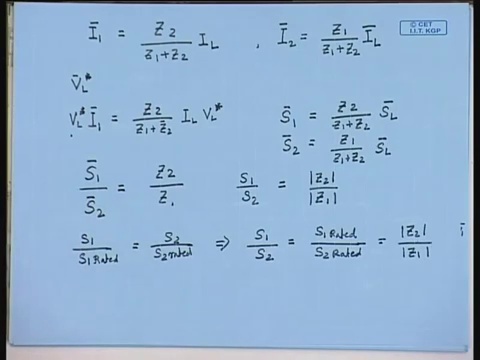 © CET
I.I.T. KGP
Ī₁ = Z₂/(Z₁+Z₂) I_L , Ī₂ = Z₁/(Z₁+Z₂) Ī_L
V̄_L*
V_L* Ī₁ = Z₂/(Z₁+Z₂) I_L V_L*
S̄₁ = Z₂/(Z₁+Z₂) S̄_L
S̄₂ = Z₁/(Z₁+Z₂) S̄_L
S̄₁/S̄₂ = Z₂/Z₁ S₁/S₂ = |Z₂|/|Z₁|
S₁/S₁ Rated = S₂/S₂ rated ⇒ S₁/S₂ = S₁ Rated/S₂ Rated = |Z₂|/|Z₁|